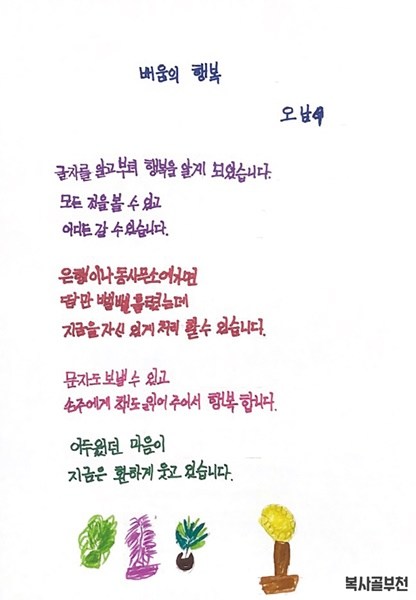 배움의 행복
오남
글자를 알고부터 행복을 알게 되었습니다.
모든 것을 볼 수 있고
어디든 갈 수 있습니다.
은행이나 동사무소에가면
땀만 뻘뻘 흘렸는데
지금은 자신 있게 처리 할 수 있습니다.
문자도 보낼 수 있고
손주에게 책도 읽어 주어서 행복 합니다.
어두웠던 마음이
지금은 환하게 웃고 있습니다.
복사골부천